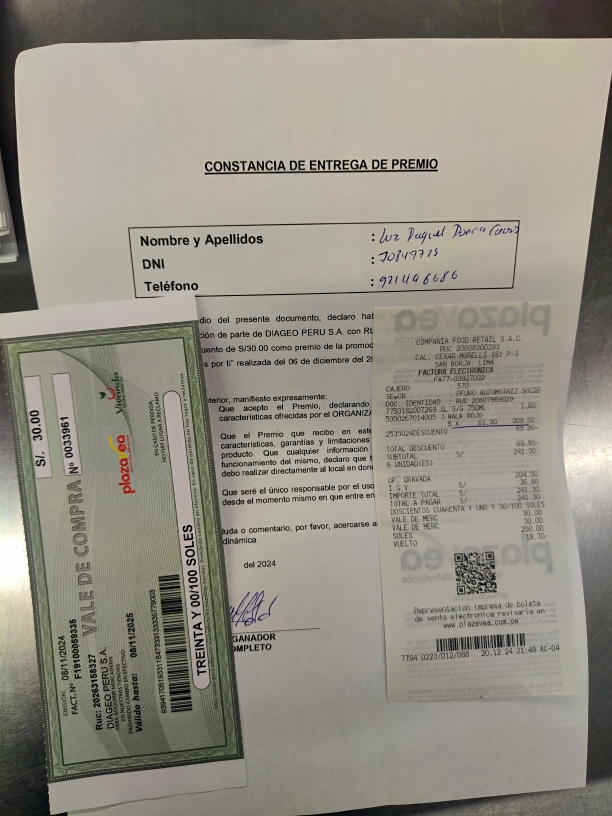 CONSTANCIA DE ENTREGA DE PREMIO
Nombre y Apellidos : Luz Raquel
DNI : 70847725
Teléfono : 921446686
dio del presente documento, declaro hab
ción de parte de DIAGEO PERU S.A. con RU
uento de S/30.00 como premio de la promoc
s por ti" realizada del 06 de diciembre del 2
terior, manifiesto expresamente:
Que acepto el Premio, declarando
características ofrecidas por el ORGANIZ
Que el Premio que recibo en este
garantías y limitaciones
producto. Que cualquier información
funcionamiento del mismo, declaro que
debo realizar directamente al local en don
Que seré el único responsable por el uso
desde el momento mismo en que entre en
uda o comentario, por favor, acercarse a
dinámica.
del 2024
GANADOR
OMPLETO
S/. 30.00
Nº 0033961
VALE DE COMPRA
plazavea
Vivanda
EN CASO DE PERDIDA,
NO HAY LUGAR A RECLAMO
EMISIÓN: 08/11/2024
FACT. Nº F19100059335
Ruc: 20263158327
DIAGEO PERU S.A.
Válido hasta: 08/11/2025
TREINTA Y 00/100 SOLES
plazavea
COMPANIA FOOD RETAIL S.A.C.
RUC 20608300393
CAL. CESAR MORELLI 181 P-3
SAN BORJA, LIMA
FACTURA ELECTRONICA
FA77-03927032
CAJERO : 570
SEÑOR : PFURO AUTOMOTRIZ SOCIE
DOC. IDENTIDAD : RUC 20607989029
7750182007269 SL S/G 750ML 1.80
5000267014005 J.WALK ROJO
5 X 61.90 309.50
2535024DESCUENTO 69.80-
TOTAL DESCUENTO 69.80-
SUBTOTAL S/ 241.30
6 UNIDAD(ES)
OP. GRAVADA 204.50
I.G.V. S/ 36.80
IMPORTE TOTAL S/ 241.30
TOTAL A PAGAR S/ 241.30
DOSCIENTOS CUARENTA Y UNO Y 30/100 SOLES
VALE DE MERC 30.00
VALE DE MERC 30.00
SOLES 200.00
VUELTO 18.70-
Representacion impresa de boleta
de venta electronica revisarla en
www.plazavea.com.pe
7794 0223/012/088 20.12.24 21:49 AC-04